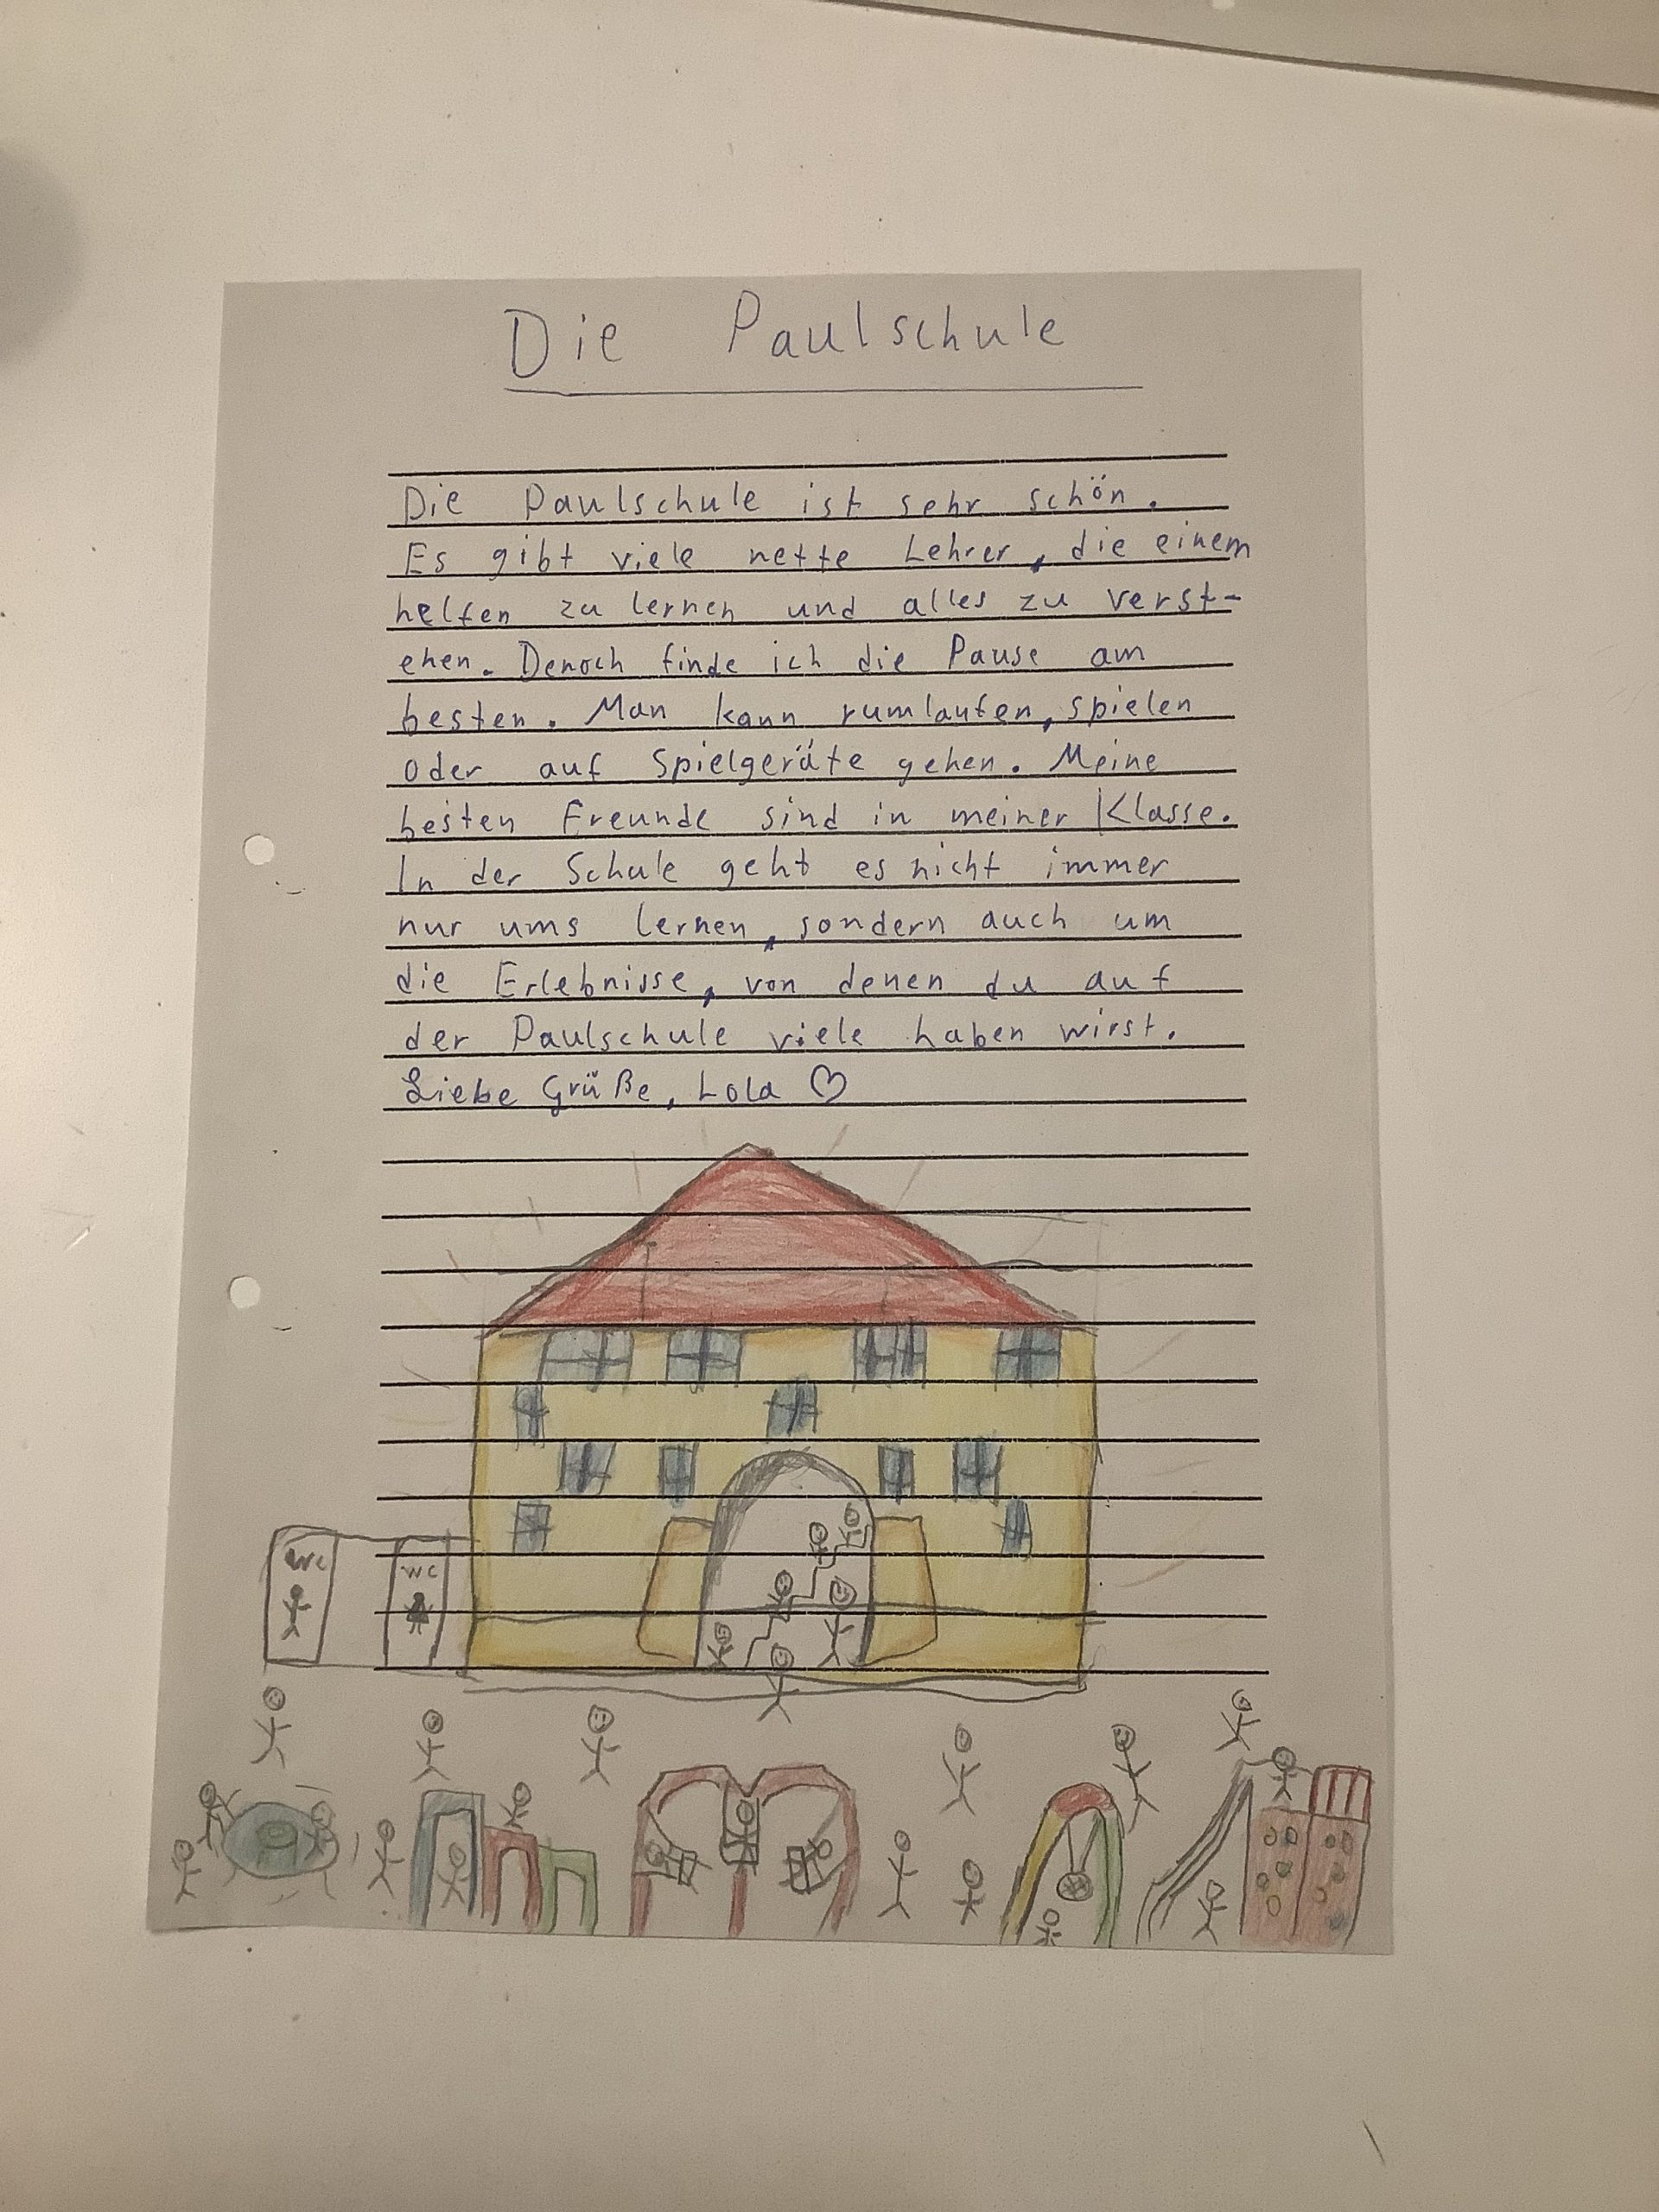 Die Paulschule
Die Paulschule ist sehr schön.
Es gibt viele nette Lehrer, die einem
helfen zu lernen und alles zu verst-
ehen. Denoch finde ich die Pause am
besten. Man kann rumlaufen, spielen
oder auf Spielgeräte gehen. Meine
besten Freunde sind in meiner Klasse.
In der Schule geht es nicht immer
nur ums lernen, sondern auch um
die Erlebnisse, von denen du auf
der Paulschule viele haben wirst.
Liebe Grüße, Lola ♡
WC
WC